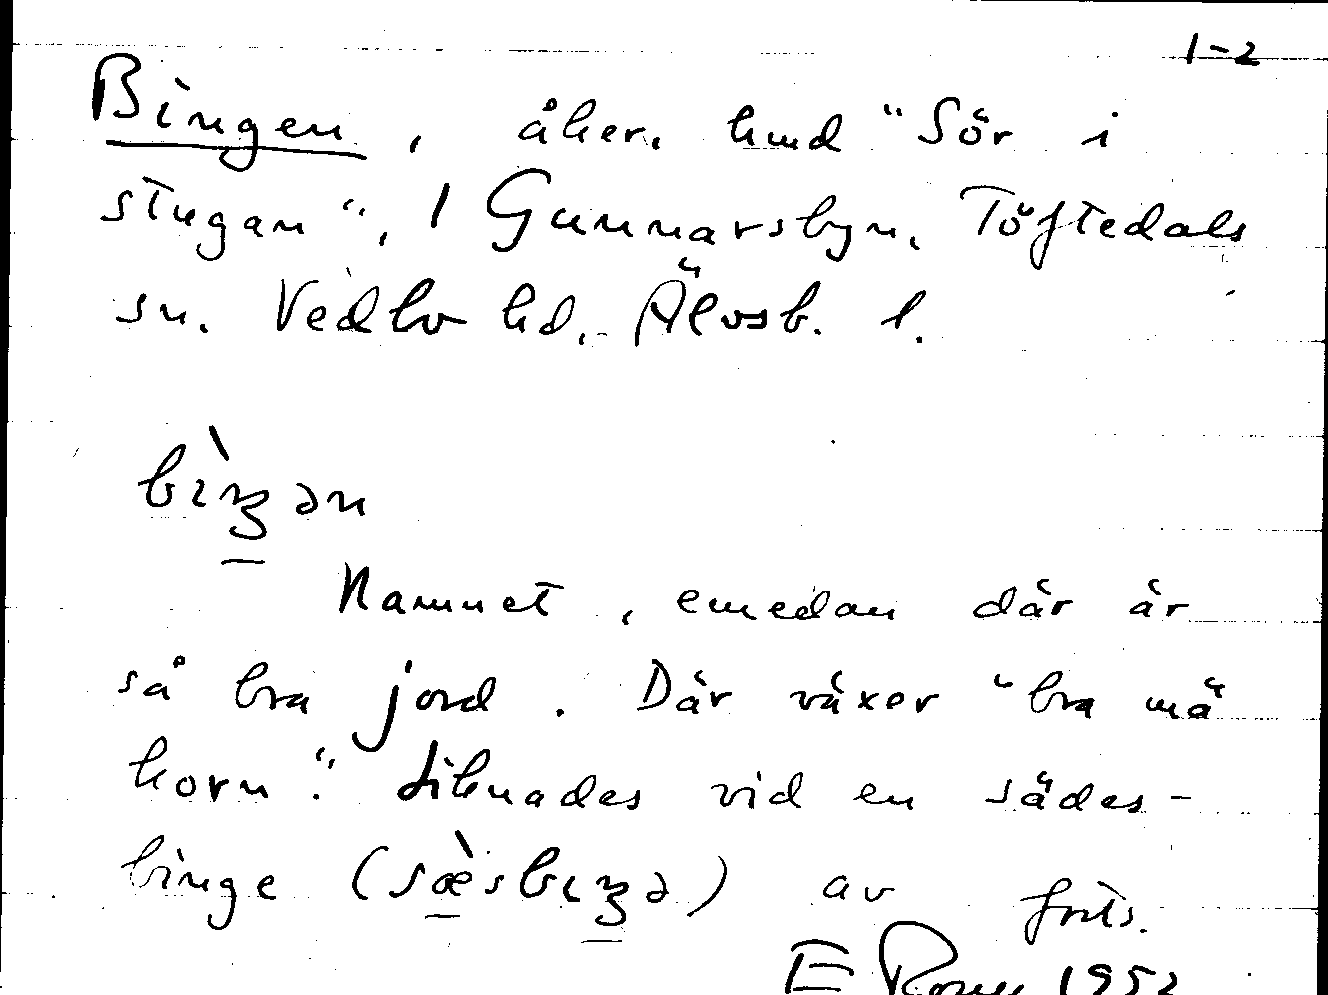 1-2
Bingen, åker, hmd "Sör i
stugan", 1 Gunnarsbyn, Töftedals
sn. Vedbo hd. Älvsb. l.
bìŋən
Namnet, emedan där är
så bra jord. Där växer "bra mä
korn". Liknades vid en sädes-
binge (sæ̀sbıŋə) av förts.
E 1952